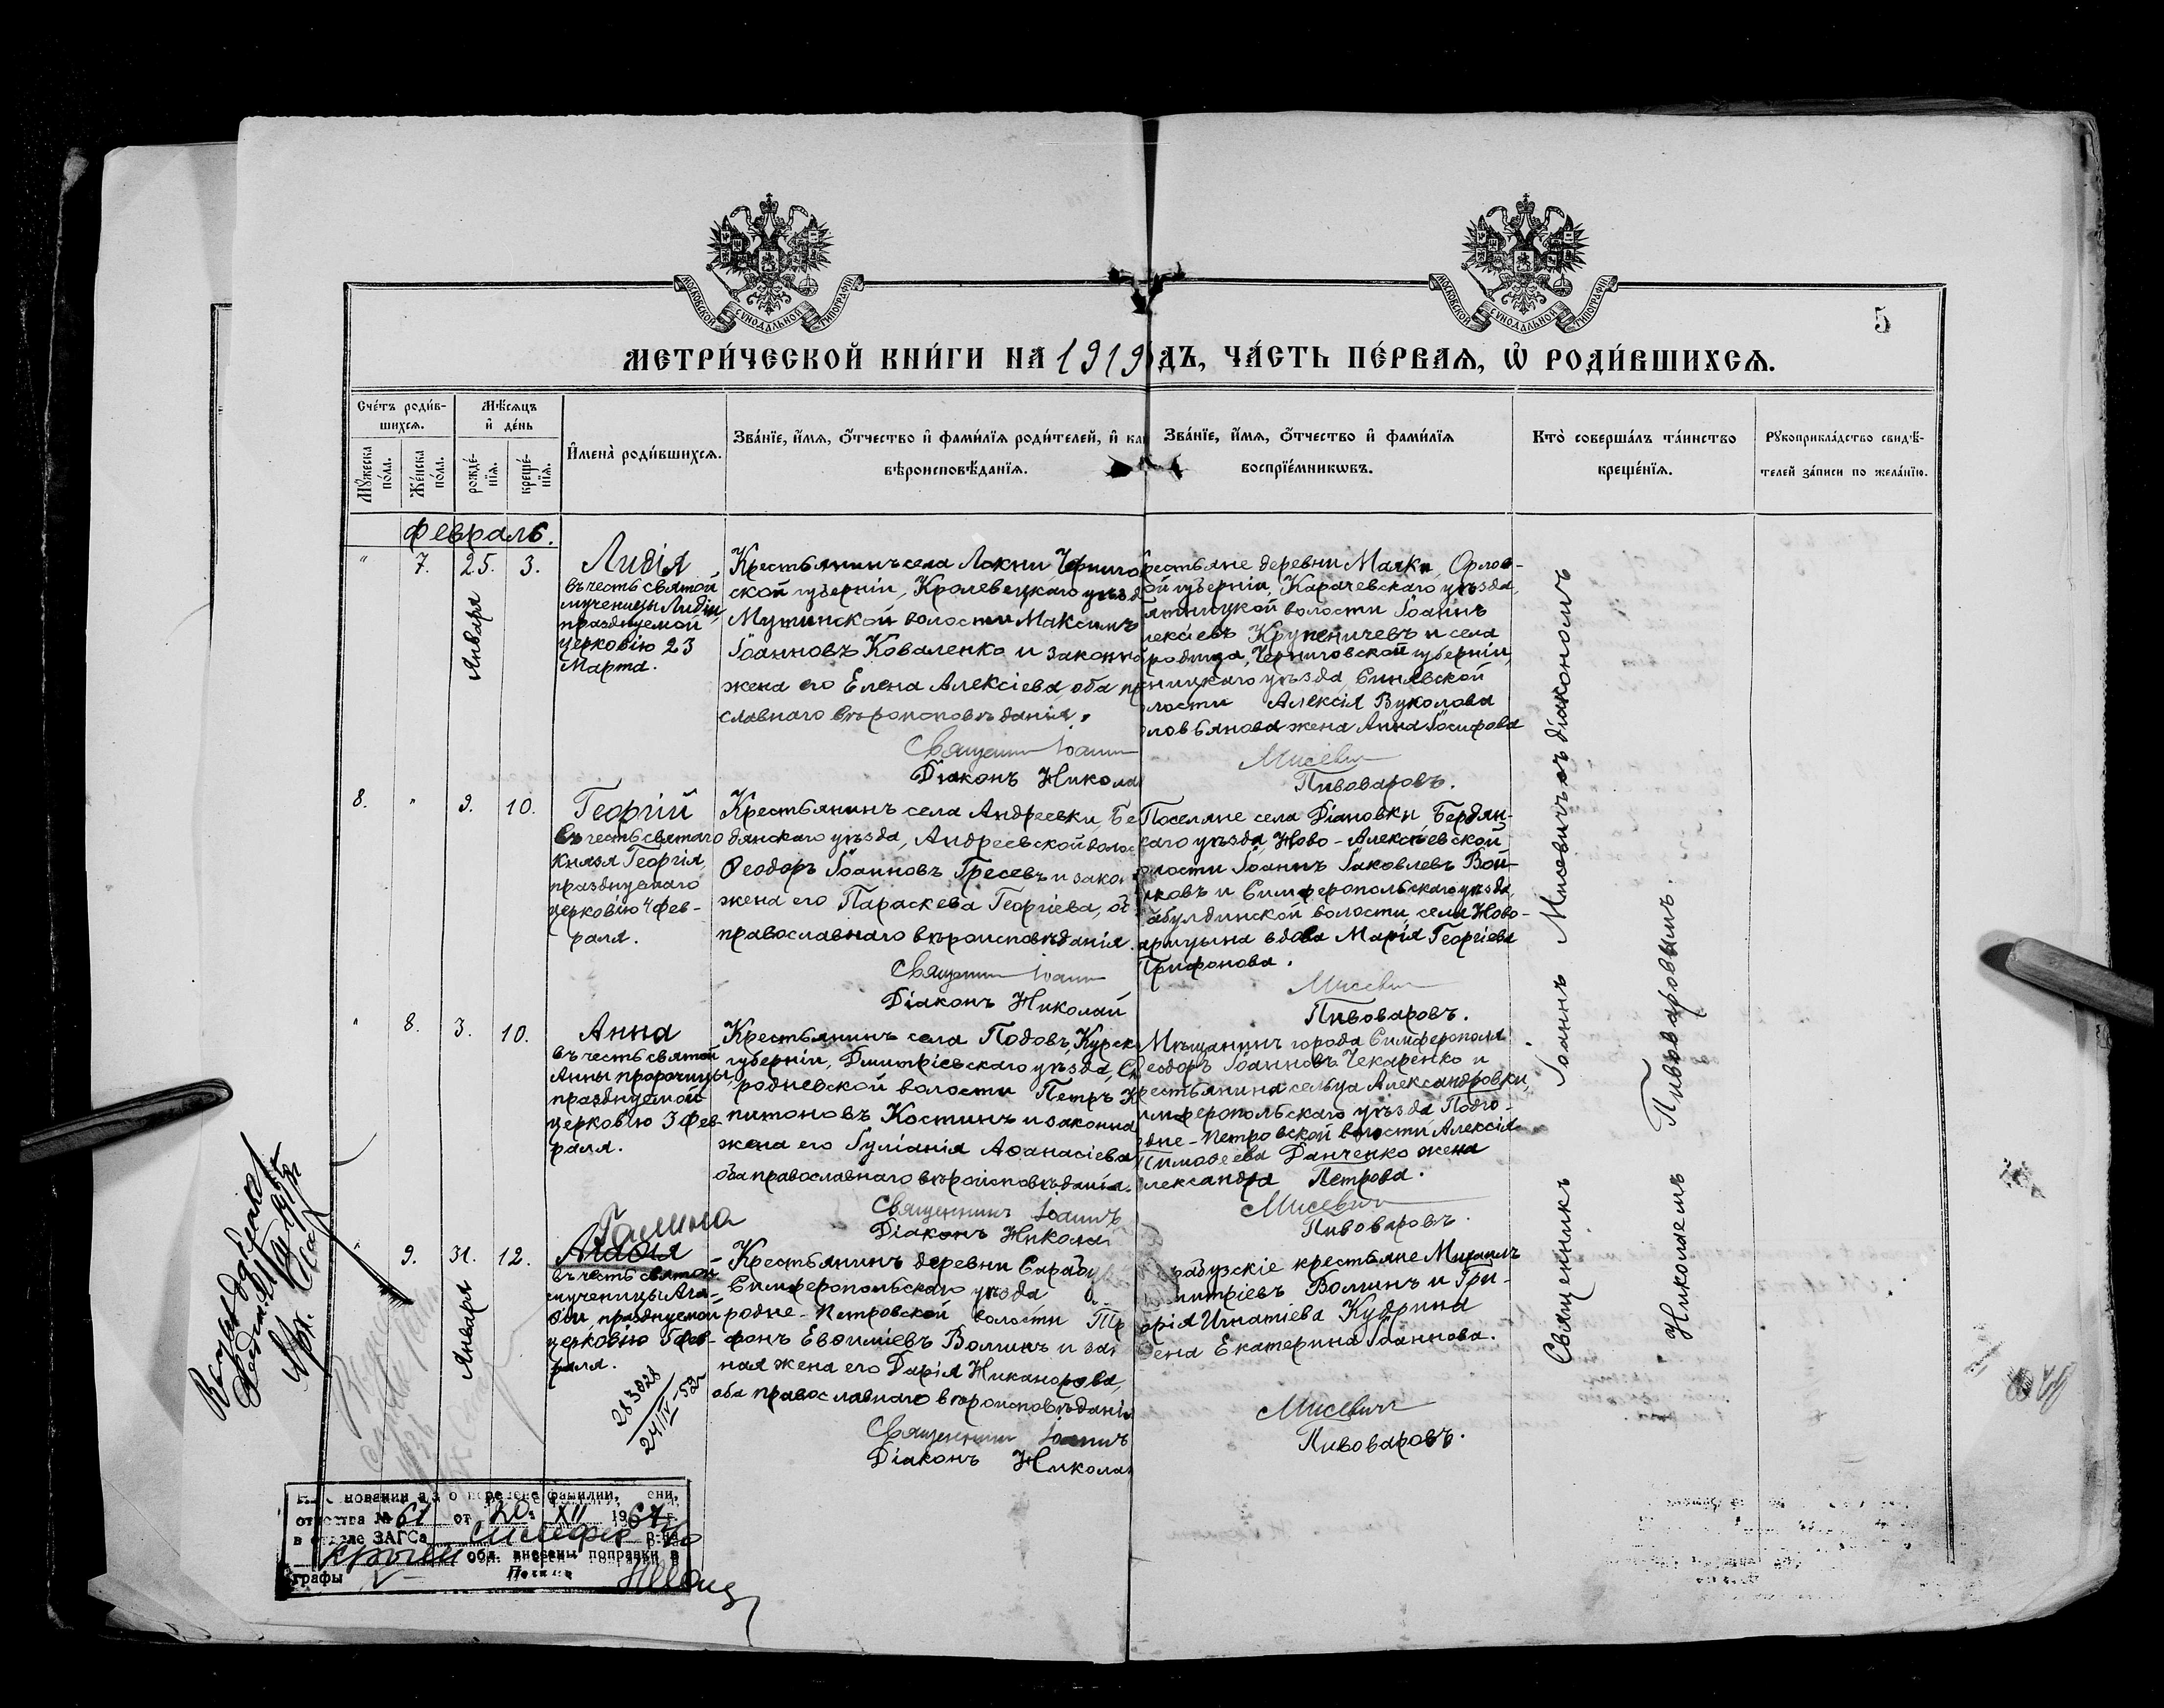 МОСКОВСКОЙ СѴНОДАЛЬНОЙ ТИПОГРАФІИ
МОСКОВСКОЙ СѴНОДАЛЬНОЙ ТИПОГРАФІИ
5
МЕТРИ́ЧЕСКОЙ КНИ́ГИ НА 1919 ДЪ, ЧА́СТЬ ПЕ́РВАЯ, Ѽ РОДИ́ВШИХСЯ.
Сче́тъ роди́в-
шихся.
Мꙋ́жеска по́ла.
Же́нска по́ла.
Мѣ́сяцъ
и҆ де́нь
рожде́-
нїя.
креще́-
нїя.
И҆мена̀ роди́вшихся.
Зва́нїе, и҆́мя, ѻ҆́тчество и҆ фами́лїя роди́телей, и҆ ка
вѣроисповѣ́данїя.
Зва́нїе, и҆́мя, ѻ҆́тчество и҆ фами́лїя
воспрїе́мникѡвъ.
Кто̀ соверша́лъ та́инство
креще́нїя.
Рꙋкоприкла́дство свидѣ́-
телей за́писи по жела́нїю.
Февраль.
" 7. 25. 3.
Января
Лидія
въ честь святой
мученицы Лидіи,
празднуемой
церковію 23
Марта.
Крестьянинъ села Локни Черниго
ской губерніи, Кролевецкаго уѣзд
Мутинской волости Максимъ
Іоанновъ Коваленко и законна
жена его Елена Алексіева, оба пр
славнаго вѣроисповѣданія.
Священник Іоанн
Діаконъ Никола
рестьяне деревни Маяки, Орлов-
ой губерніи, Карачевскаго уѣзда,
ятницкой волости Іоаннъ
лексіевъ Крупеничевъ и села
родища, Черниговской губерніи,
ницкаго уѣзда, Синявской
лости Алексія Вуколова
оловьянова жена Анна Іосифова
Мисевич
Пивоваровъ.
8. " 9. 10.
Георгій
въ честь святаго
Князя Георгія,
празднуемаго
церковію 4 Фев-
раля.
Крестьянинъ села Андреевки, Бе
дянскаго уѣзда, Андреевской волос
Ѳеодоръ Іоанновъ Гресевъ и зако
жена его Параскева Георгіева, об
православнаго вѣроисповѣданія.
Священник Іоанн
Діаконъ Николай
Поселяне села Діановки Бердян-
каго уѣзда, Ново-Алексѣевской
олости Іоаннъ Іаковлевъ Вой-
иковъ и Симферопольскаго уѣзда,
абулдинской волости, села Ново-
арицына вдова Марія Георгіева
Трифонова.
Мисевич
Пивоваровъ.
" 8. 3. 10.
Анна
въ честь святой
Анны пророчицы,
празднуемой
церковію 3 Фев-
раля.
Крестьянинъ села Подовъ, Курск
губерніи, Дмитріевскаго уѣзда, Ск
родневской волости Петръ К
питоновъ Костинъ и законна
жена его Іуліанія Аѳанасіева
оба православнаго вѣроисповѣданія.
Священникъ Іоаннъ
Діаконъ Никола
Мѣщанинъ города Симферополя
еодоръ Іоанновъ Чекаренко и
рестьянина сельца Александровки,
имферопольскаго уѣзда Подго-
дне-Петровской волости Алексія
Тимоѳеева Данченко жена
лександра Петрова.
Мисевич
Пивоваровъ.
Галина
" 9. 31. 12.
Января
Агаѳія
въ честь святой
мученицы Ага-
ѳіи, празднуемой
церковію 5 фев-
раля.
283028
24/IV 52
Крестьянинъ деревни Сарабу
Симферопольскаго уѣзда
родне-Петровской волости Тр
фонъ Евѳиміевъ Волминъ и за
ная жена его Дарія Никанорова,
оба православнаго вѣроисповѣдані
Священник Іоаннъ
Діаконъ Никола
рабузскіе крестьяне Михаилъ
митріевъ Волминъ и Гри-
орія Игнатіева Кудрина
ена Екатерина Іоаннова.
Мисевич
Пивоваровъ.
Священникъ Іоаннъ Мисевичъ съ діакономъ
Николаемъ Пивоваровымъ.
о перемене фамилии,
отчества № 61 от 20 XII 1967 г.
в отделе ЗАГСа Симфер р-на
Крым обл. внесены поправки в
графы